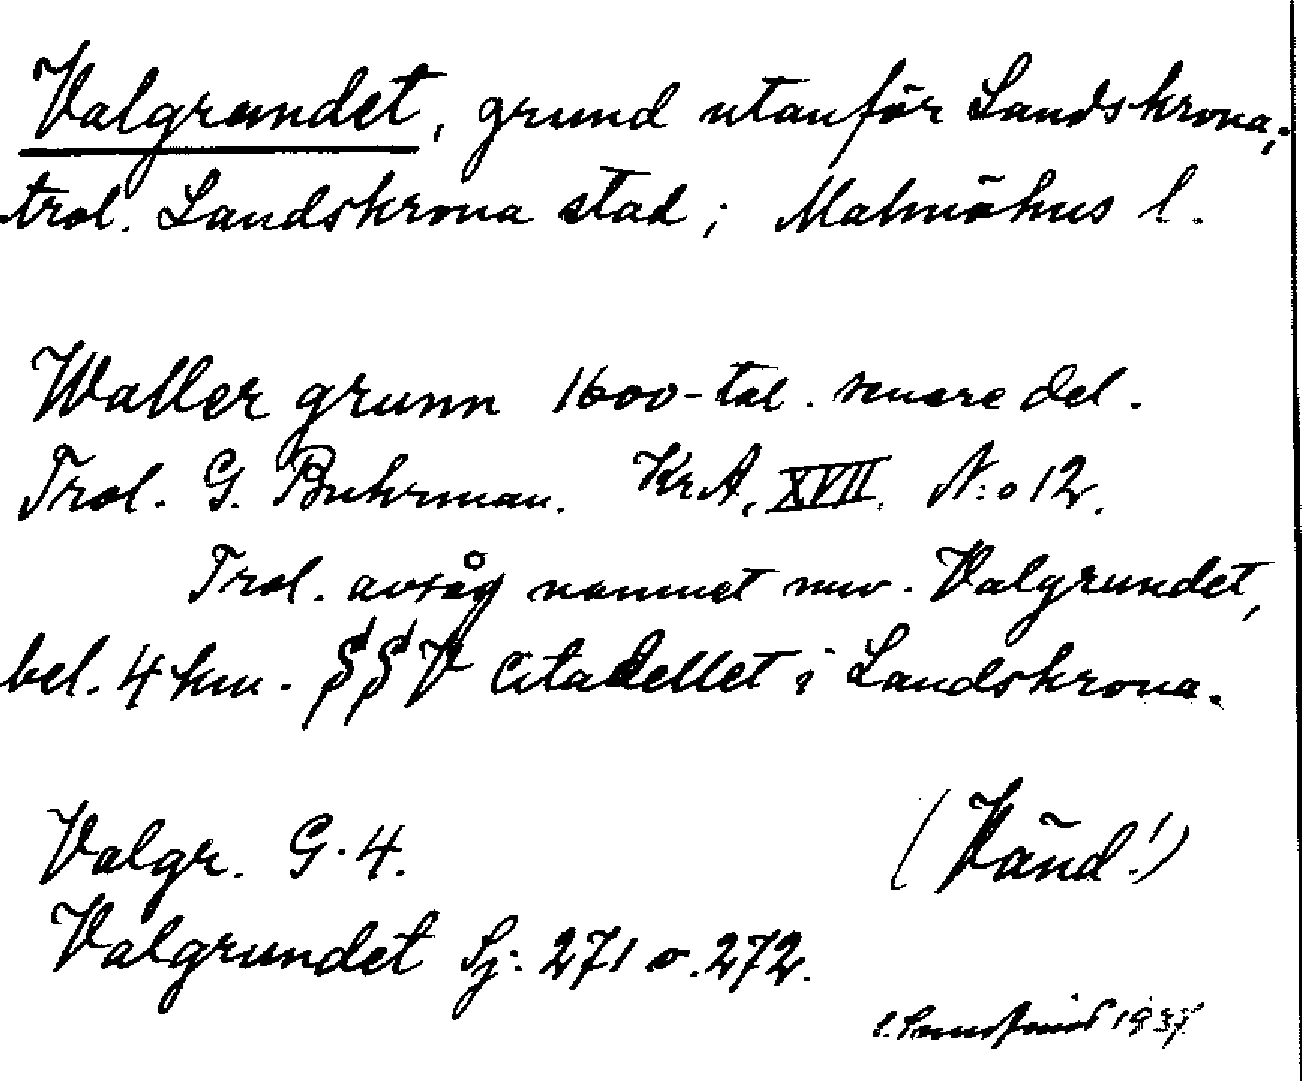 Valgrundet, grund utanför Landskrona;
trol. Landskrona stad; Malmöhus l.
Waller grunn 1600-tal. senare del.
Trol. G. Buhrman. Kr.A. XVII. N:o 12.
Trol. avsåg namnet nuv. Valgrundet,
bel. 4 km. SSV Citadellet i Landskrona.
Valgr. G. 4.
(Vänd!)
Valgrundet Sj. 271 o. 272.
1937